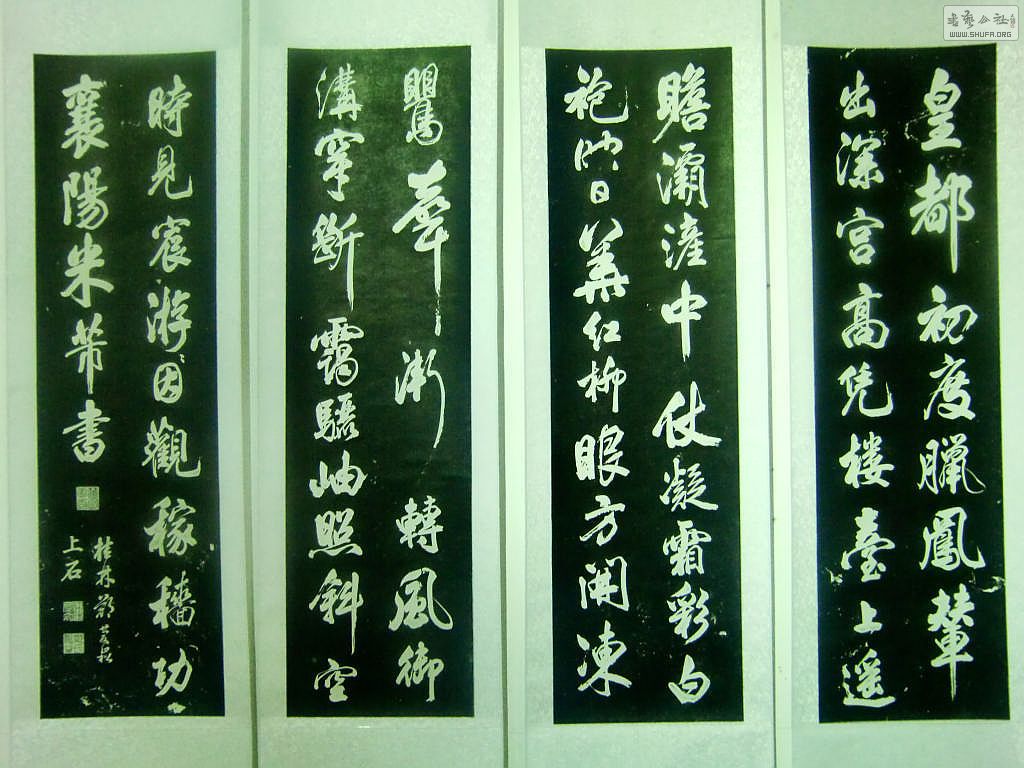 皇都初度臘鳳輦
出深宫高凭楼臺上遥
瞻灞滻中仗凝霜彩白
袍映日華紅柳眼方開凍
鸎聲漸轉風御
溝穿斷靄驪岫照斜空
時見宸游因觀稼穡功
襄陽米芾書
桂林
上石
書藝公社
WWW.SHUFA.ORG